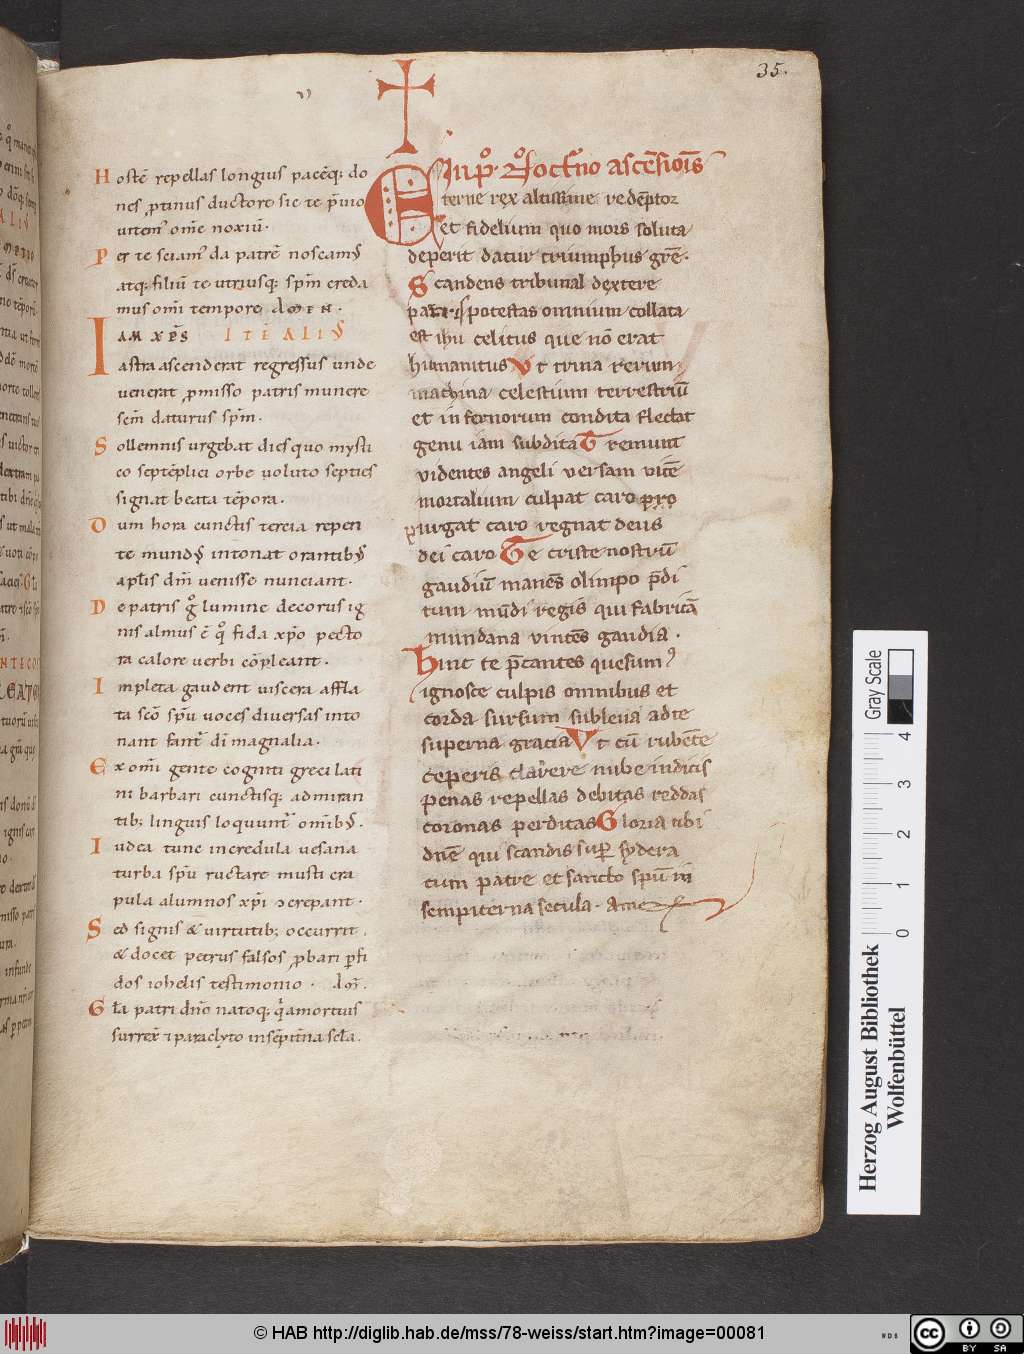 35.
Hostē repellas longius pacēq; do
nes ꝓtinus ductore sic te p̄uio
uitem᷒ om̄e noxiū.
Per te sciam᷒ da patrē noscamꝰ
atq; filiū te utriusq; spm̄ creda
mus om̄i tempore. Amen.
IAM XP̄S ITĒ ALIꝰ
astra ascenderat regressus unde
uenerat ꝓmisso patris munere
scm̄ daturus spm̄.
Sollemnis urgebat dies quo mysti
co septēplici orbe uoluto septies
signat beata tēpora.
Dum hora cunctis tercia repen
te mundꝰ intonat orantibꝰ
aplis dm̄ uenisse nunciant.
De patris gͦ lumine decorus ig
nis almus ē qͦ fida xp̄o pecto
ra calore uerbi cōpleant.
Impleta gaudent uiscera affla
ta scō spū uoces diuersas into
nant fantᷓ di magnalia.
Ex om̄i gente cogniti greci lati
ni barbari cunctisq; admiran
tib; linguis loquuntᷓ om̄ibꝰ.
Iudea tunc incredula uesana
turba spū ructare musti cra
pula alumnos xp̄i ɔcrepant.
Sed signis & uirtutib; occurrit.
& docet petrus falsos ꝓbari ꝑfi
dos iohelis testimonio. Am̄.
Gła patri dn̄o natoq; qͥ a mortuis
surrex̄ ⁊ paraclyto in sēpitna scła.
Eterne rex altissime redēptor
et fidelium quo mors soluta
deperit datur triumphus grē.
Scandens tribunal dextere
patris potestas omnium collata
est ihu celitus que nō erat
humanitus Vt trina rerum
machina celestium terrestriū
et infernorum condita flectat
genu iam subdita Tremunt
videntes angeli versam vicē
mortalium culpat caro pro
purgat caro regnat deus
dei caro Te criste nostrū
gaudiū manēs olimpo p̄di
tum mūdi regis qui fabricā
mundana vincēs gaudia.
Hinc te p̄cantes quesum᷒
ignosce culpis omnibus et
corda sursum subleua ad te
superna gracia Vt cū rubēte
ceperis clarere nube iudicis
penas repellas debitas reddas
coronas perditas Gloria tibi
dn̄e qui scandis suꝑ sydera
cum patre et sancto spū in
sempiterna secula. Amē
Gray Scale
0 1 2 3 4
Herzog August Bibliothek
Wolfenbüttel
© HAB http://diglib.hab.de/mss/78-weiss/start.htm?image=00081
cc BY SA